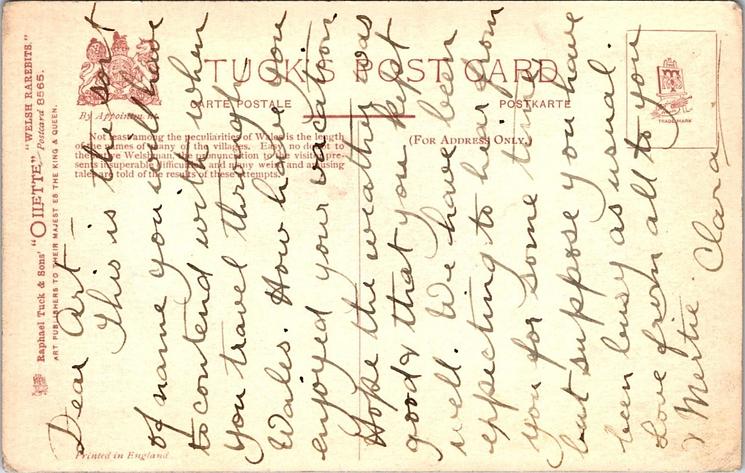 TUCK'S POST CARD
CARTE POSTALE
POSTKARTE
By Appointment
(FOR ADDRESS ONLY.)
TRADE MARK
Not least among the peculiarities of Wales is the length
of the names of many of the villages. Easy no doubt to
the native Welshman, the pronunciation to the visitor pre-
sents insuperable difficulties and many weird and amusing
tales are told of the results of these attempts.
Raphael Tuck & Sons' "OILETTE," "WELSH RAREBITS."
Postcard 8565.
ART PUBLISHERS TO THEIR MAJESTIES THE KING & QUEEN.
Printed in England
Dear Art –
This is the sort
of name you will have
to contend with when
you travel through
Wales. How have you
enjoyed your vacation
Hope the weather was
good & that you kept
well. We have been
expecting to hear from
you for some time
but suppose you have
been busy as usual.
Love from all to you
& Mertie. Clara